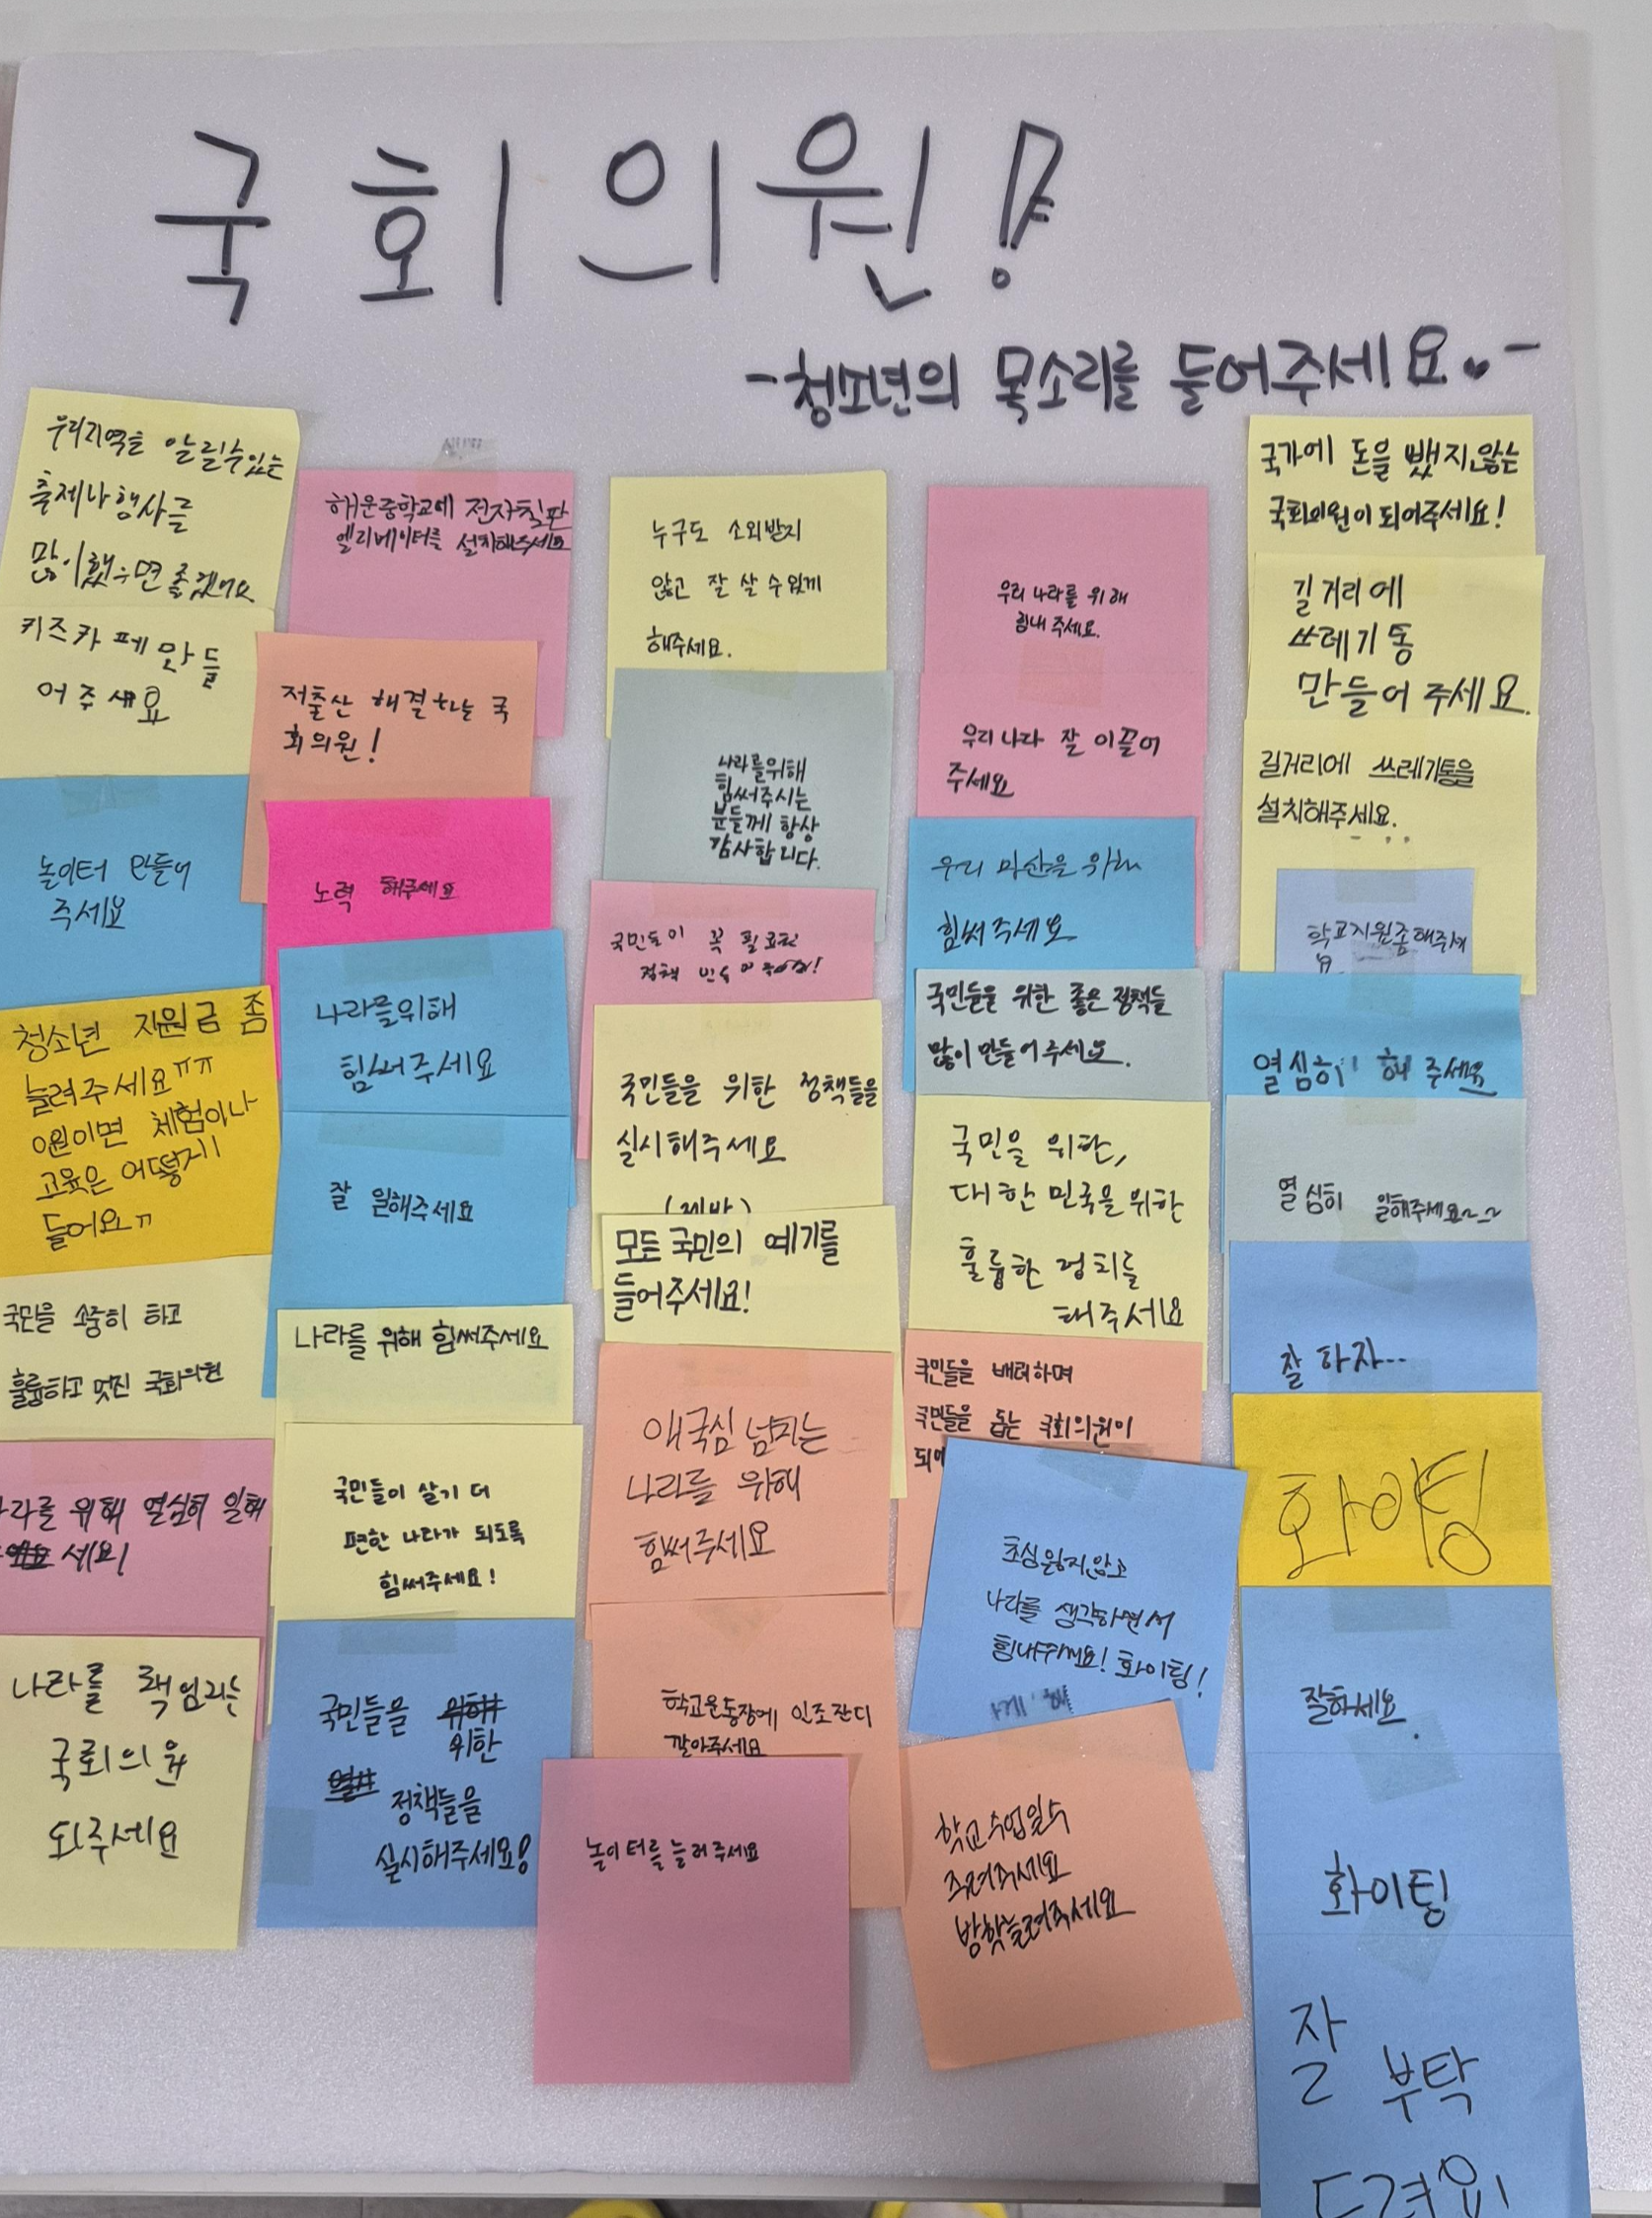 국회의원!
-청소년의 목소리를 들어주세요.-
우리지역을 알릴수있는
축제나 행사를
많이했으면 좋겠어요
키즈카페 만들
어주세요
놀이터 만들어
주세요
청소년 지원금 좀
늘려주세요ㅠㅠ
0원이면 체험이나
교육은 어떻게
들어요ㅠ
국민을 소중히 하고
훌륭하고 멋진 국회의원
나라를 위해 열심히 일해
세요!
나라를 책임지는
국회의원
되주세요
해운중학교에 전자칠판
엘리베이터를 설치해주세요
저출산 해결하는 국
회의원!
노력 해주세요
나라를위해
힘써주세요
잘 일해주세요
나라를 위해 힘써주세요
국민들이 살기 더
편한 나라가 되도록
힘써주세요!
국민들을
위한
정책들을
실시해주세요!
누구도 소외받지
않고 잘 살 수있게
해주세요.
나라를위해
힘써주시는
분들께 항상
감사합니다.
국민들이 꼭 필요한
정책
국민들을 위한 정책들을
실시해주세요
(제발)
모든 국민의 얘기를
들어주세요!
애국심 넘치는
나라를 위해
힘써주세요
학교운동장에 인조잔디
깔아주세요
놀이터를 늘려주세요
우리 나라를 위해
힘내 주세요.
우리나라 잘 이끌어
주세요
우리 마산을 위해
힘써주세요
국민들을 위한 좋은 정책들
많이 만들어주세요.
국민을 위한,
대한민국을 위한
훌륭한 정치를
해주세요
국민들을 배려하며
국민들을 돕는 국회의원이
되어
초심잃지않고
나라를 생각하면서
힘내주세요! 화이팅!
학교수업일수
주려주세요
방학늘려주세요
국가에 돈을 뺐지않는
국회의원이 되어주세요!
길거리에
쓰레기통
만들어 주세요.
길거리에 쓰레기통을
설치해주세요.
학교지원좀해주세
요.
열심히 해 주세요
열심히 일해주세요~
잘하자…
화이팅
잘하세요.
화이팅
잘 부탁
드려요!